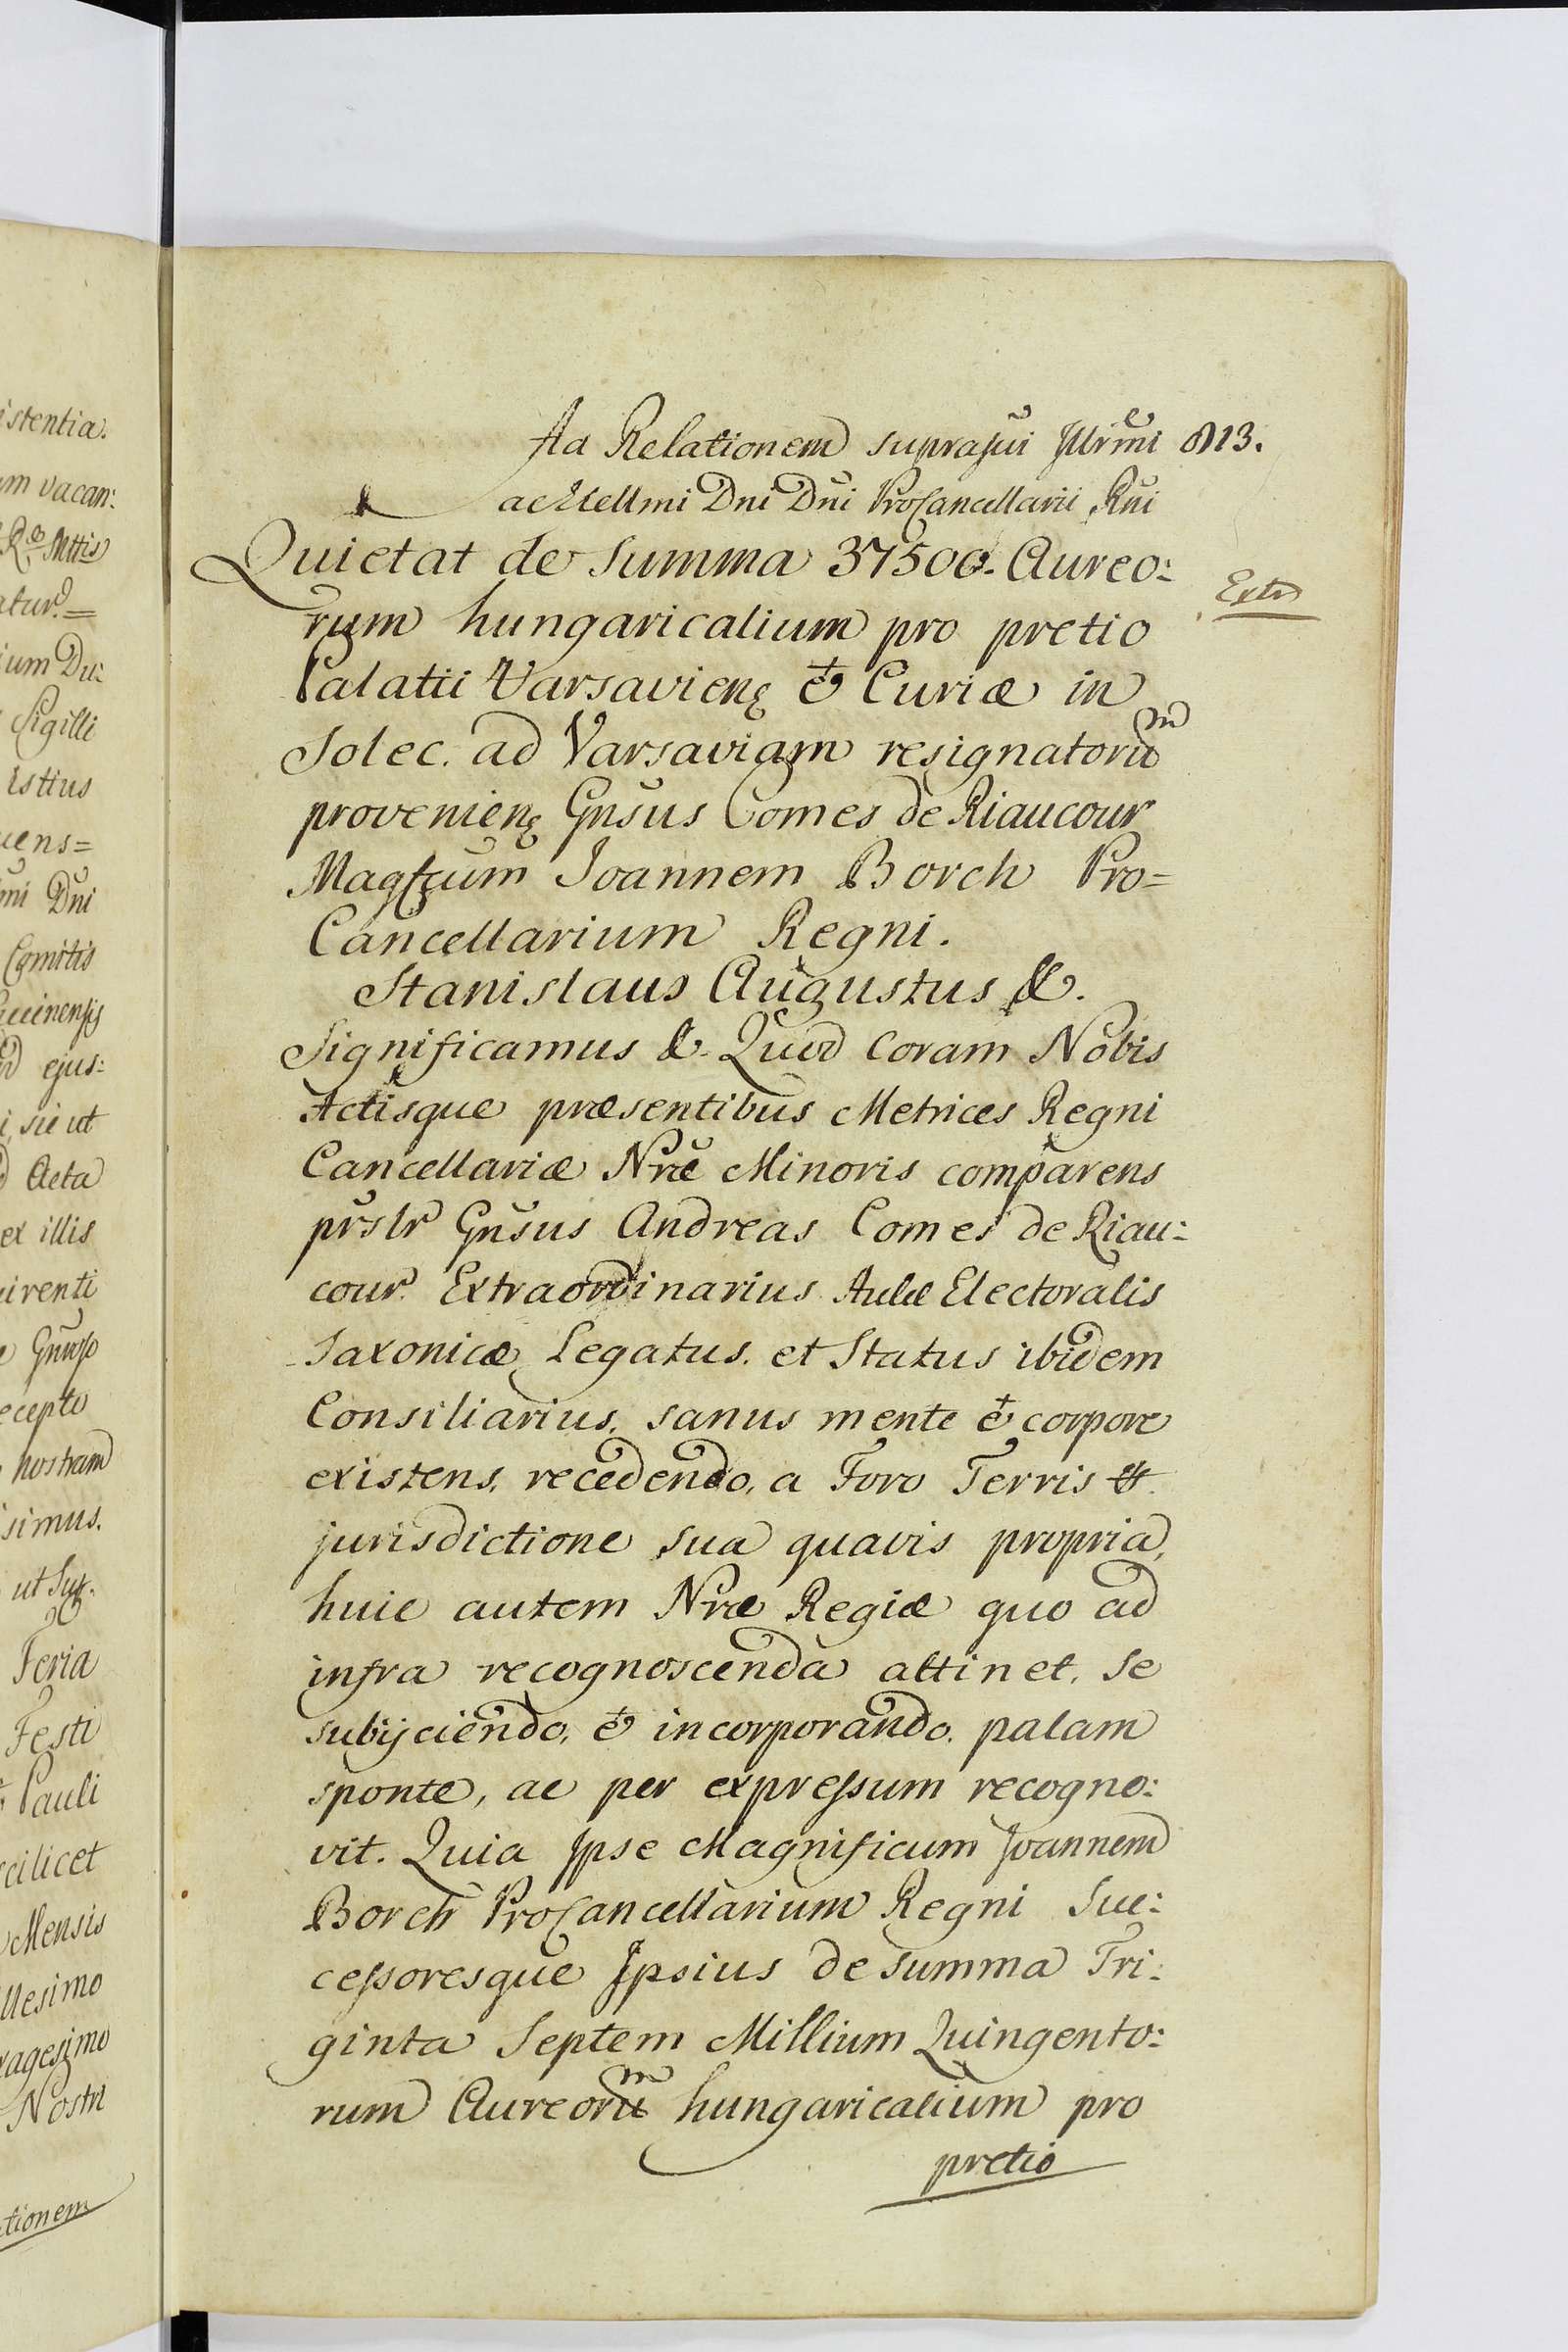 istentia.
um vacan:
Rᵉ Mttis
atur. =
ium Du:
Sigilli
istius
uens =
mi Dni
Comitis
ejus:
i, sic ut
Acta
ex illis
uirenti
e Gnũso
ecepto
nostram
simus.
ut Sup.
Feria
Festi
Pauli
scilicet
Mensis
llesimo
xagesimo
Nostri
ationem
Ad Relationem supraſũi Jllr̃mi 813.
ac Excellmi Dni Dñi ProCancellarii Rñi
Quietat de Summa 37500. Aureo:
rum hungaricalium pro pretio
Palatii Varsavienȩ et Curiæ in
Solec. ad Varsaviam resignatorum
provenienȩ Gnsus Comes de Riaucour
Magfcum Joannem Borch Pro=
Cancellarium Regni.
Stanislaus Augustus &.
Significamus &. Quod Coram Nobis
Actisque præsentibus Metrices Regni
Cancellariæ Nræ Minoris comparens
prslr Gnsus Andreas Comes de Riau:
cour. Extraordinarius Aulæ Electoralis
Saxonicæ Legatus. et Status ibidem
Consiliarius, sanus mente et corpore
existens, recedendo, a Foro Terris &.
jurisdictione sua quavis propria,
huic autem Nræ Regiæ quo ad
infra recognoscenda attinet, se
subijciendo, et incorporando, palam
sponte, ac per expreſsum recogno:
vit. Quia Jpse Magnificum Joannem
Borch ProCancellarium Regni Suc:
ceſsoresque Jpsius de summa Tri:
ginta Septem Millium Quingento:
rum Aureorum hungaricalium pro
pretio
Extr